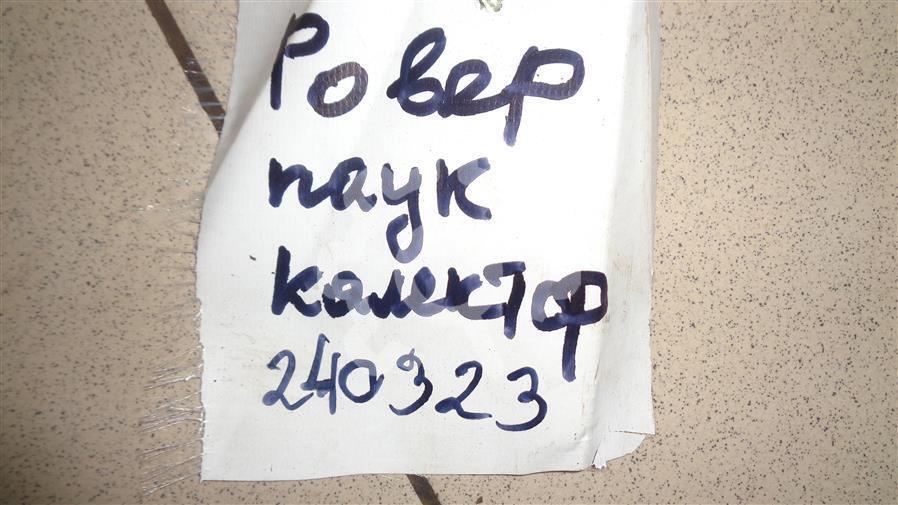 Ровер
паук
колектор
240323